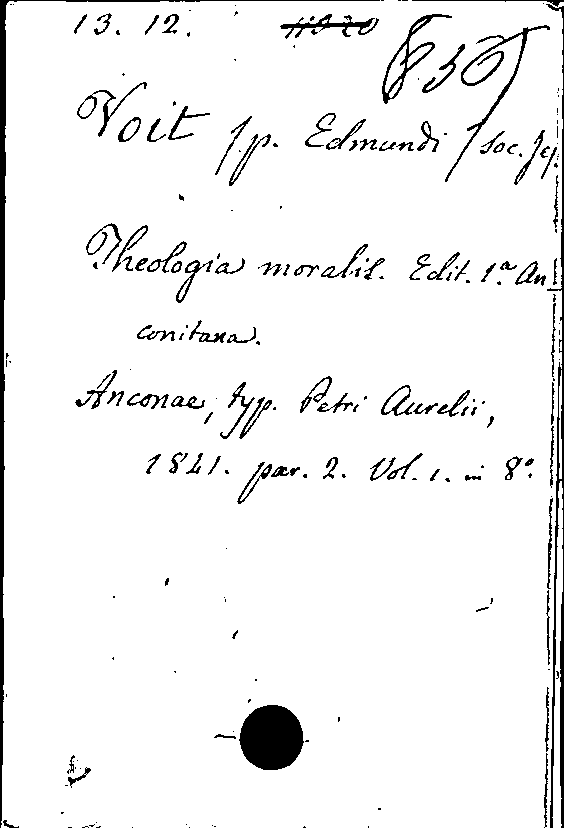 13. 12.
Voit /p. Edmundi / soc. Jes.
Theologia moralis. Edit. 1.ª An
conitana.
Anconae, typ. Petri Aurelii,
1841. par. 2. Vol. 1. in 8º.